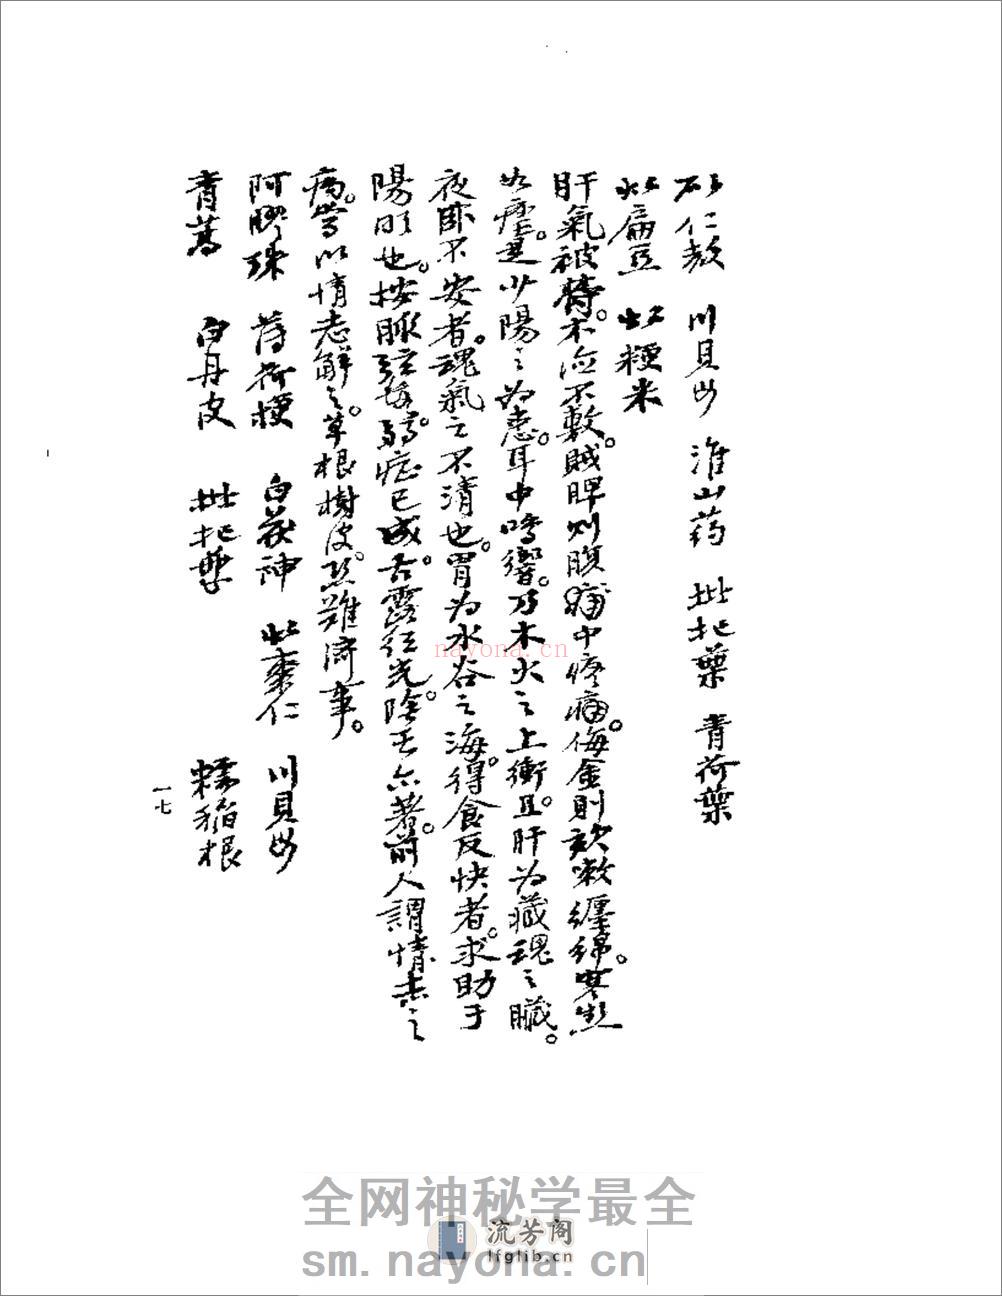 砂仁殼 川貝母 淮山药 枇杷葉 青荷葉
炒扁豆 炒粳米
肝氣被 不 不敷。賊脾则腹痛中疼痛。侮金則欬嗽纏綿。寒热
如瘧。是少陽之为患。耳中鸣響。乃木火之上衝。且肝为藏魂之臟。
夜卧不安者。魂氣之不清也。胃为水谷之海。得食反快者。求助于
陽明也。按脈弦 弱。症已成。舌露红光。陰 亦著。前人謂情志之
病。当以情志解之。草根樹皮。恐難濟事。
阿膠珠 薄荷梗 白茯神 炒棗仁 川貝母
青蒿 白丹皮 枇杷葉 糯稻根
一七
nayona.cn
全网神秘学最全
流芳阁
lfglib.cn
sm.nayona.cn